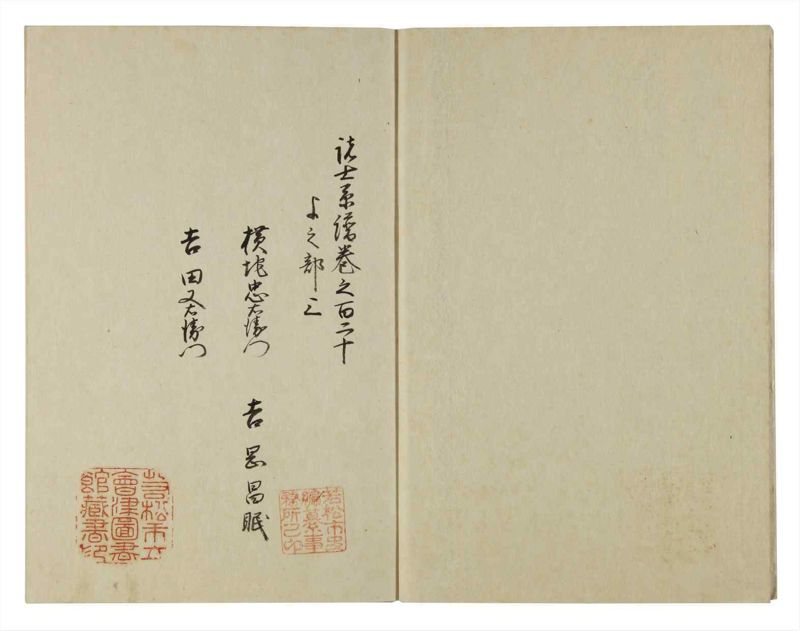 諸士系譜巻之百二十
よ之部 三
横地忠右衛門 吉岡昌眠
吉田又右衛門
若松市立
會津圖書
館藏書印
若松市史
編纂事
務所之印